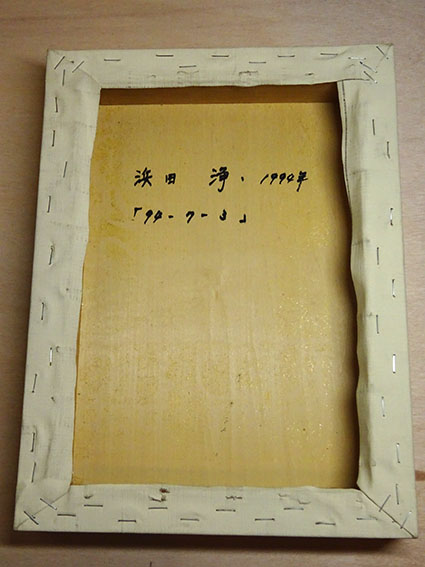 浜田 浄、1994年
「94-7-3」